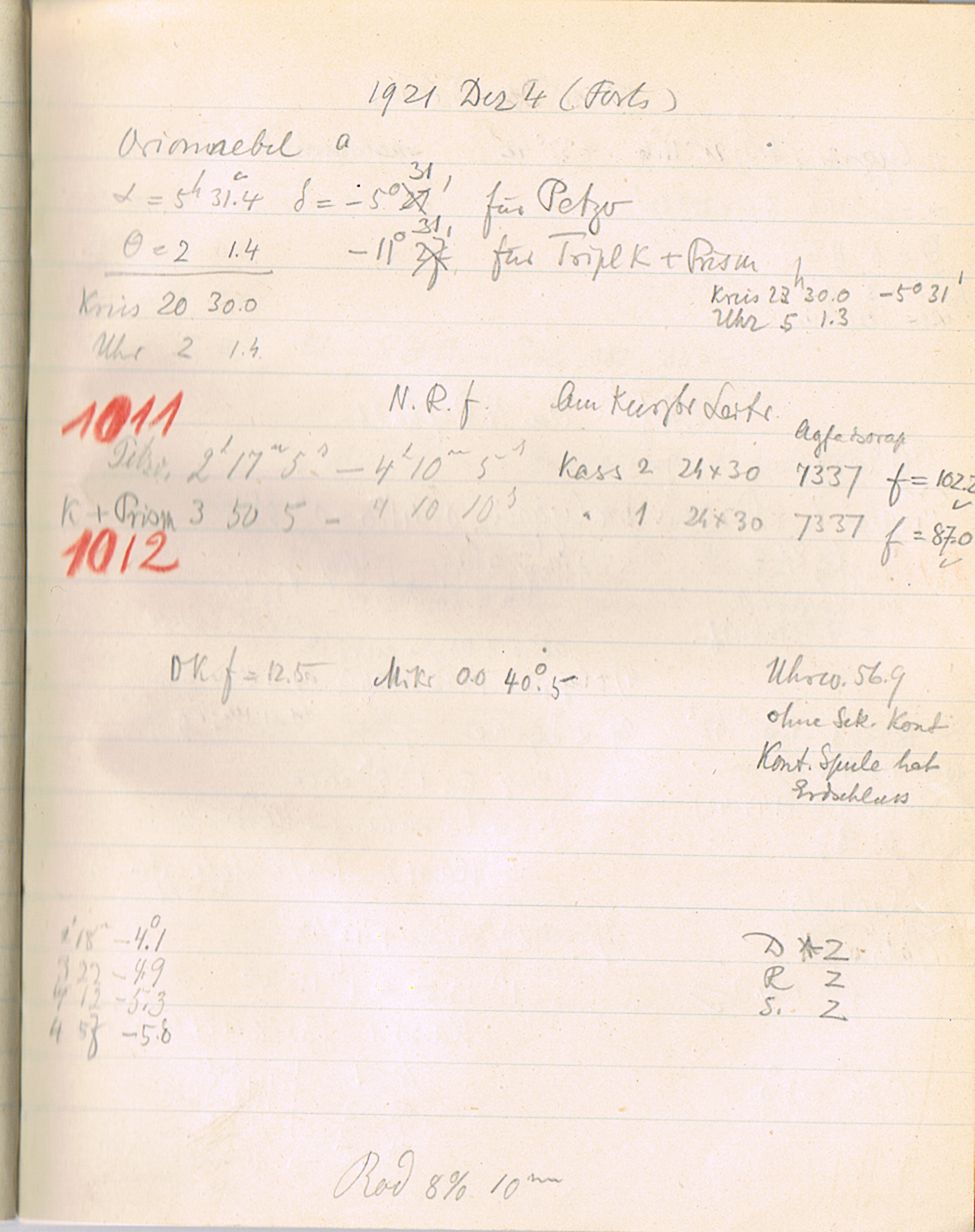 1921 Dez 4 (Forts)
Orionnebel a
α = 5h 31.4 δ = -5° 31' für Petzv
θ = 2 1.4 -11° 31' für Tripl K + Prism
Kreis 20 30.0
Kreis 23h 30.0 -5° 31'
Uhr 5 1.3
Uhr 2 1.4
N. R. f.
1011
Agfa Isorap
Petzv. 2h 17m 5s — 4h 10m 5s Kass 2 24×30 7337 f = 102.2 ✓
K + Prism 3 50 5 — 4 10 10s " 1 24×30 7337 f = 87.0 ✓
1012
DK f = 12.5 Mikr 0.0 40°.5 Uhrw. 56.9
ohne Sek. Kont
Kont. Spule hat
Erdschluss
18m -4°.1
3 22 -4.9
4 12 -5.3
4 57 -5.8
D 2
R 2
S. 2
Rod 8% 10m